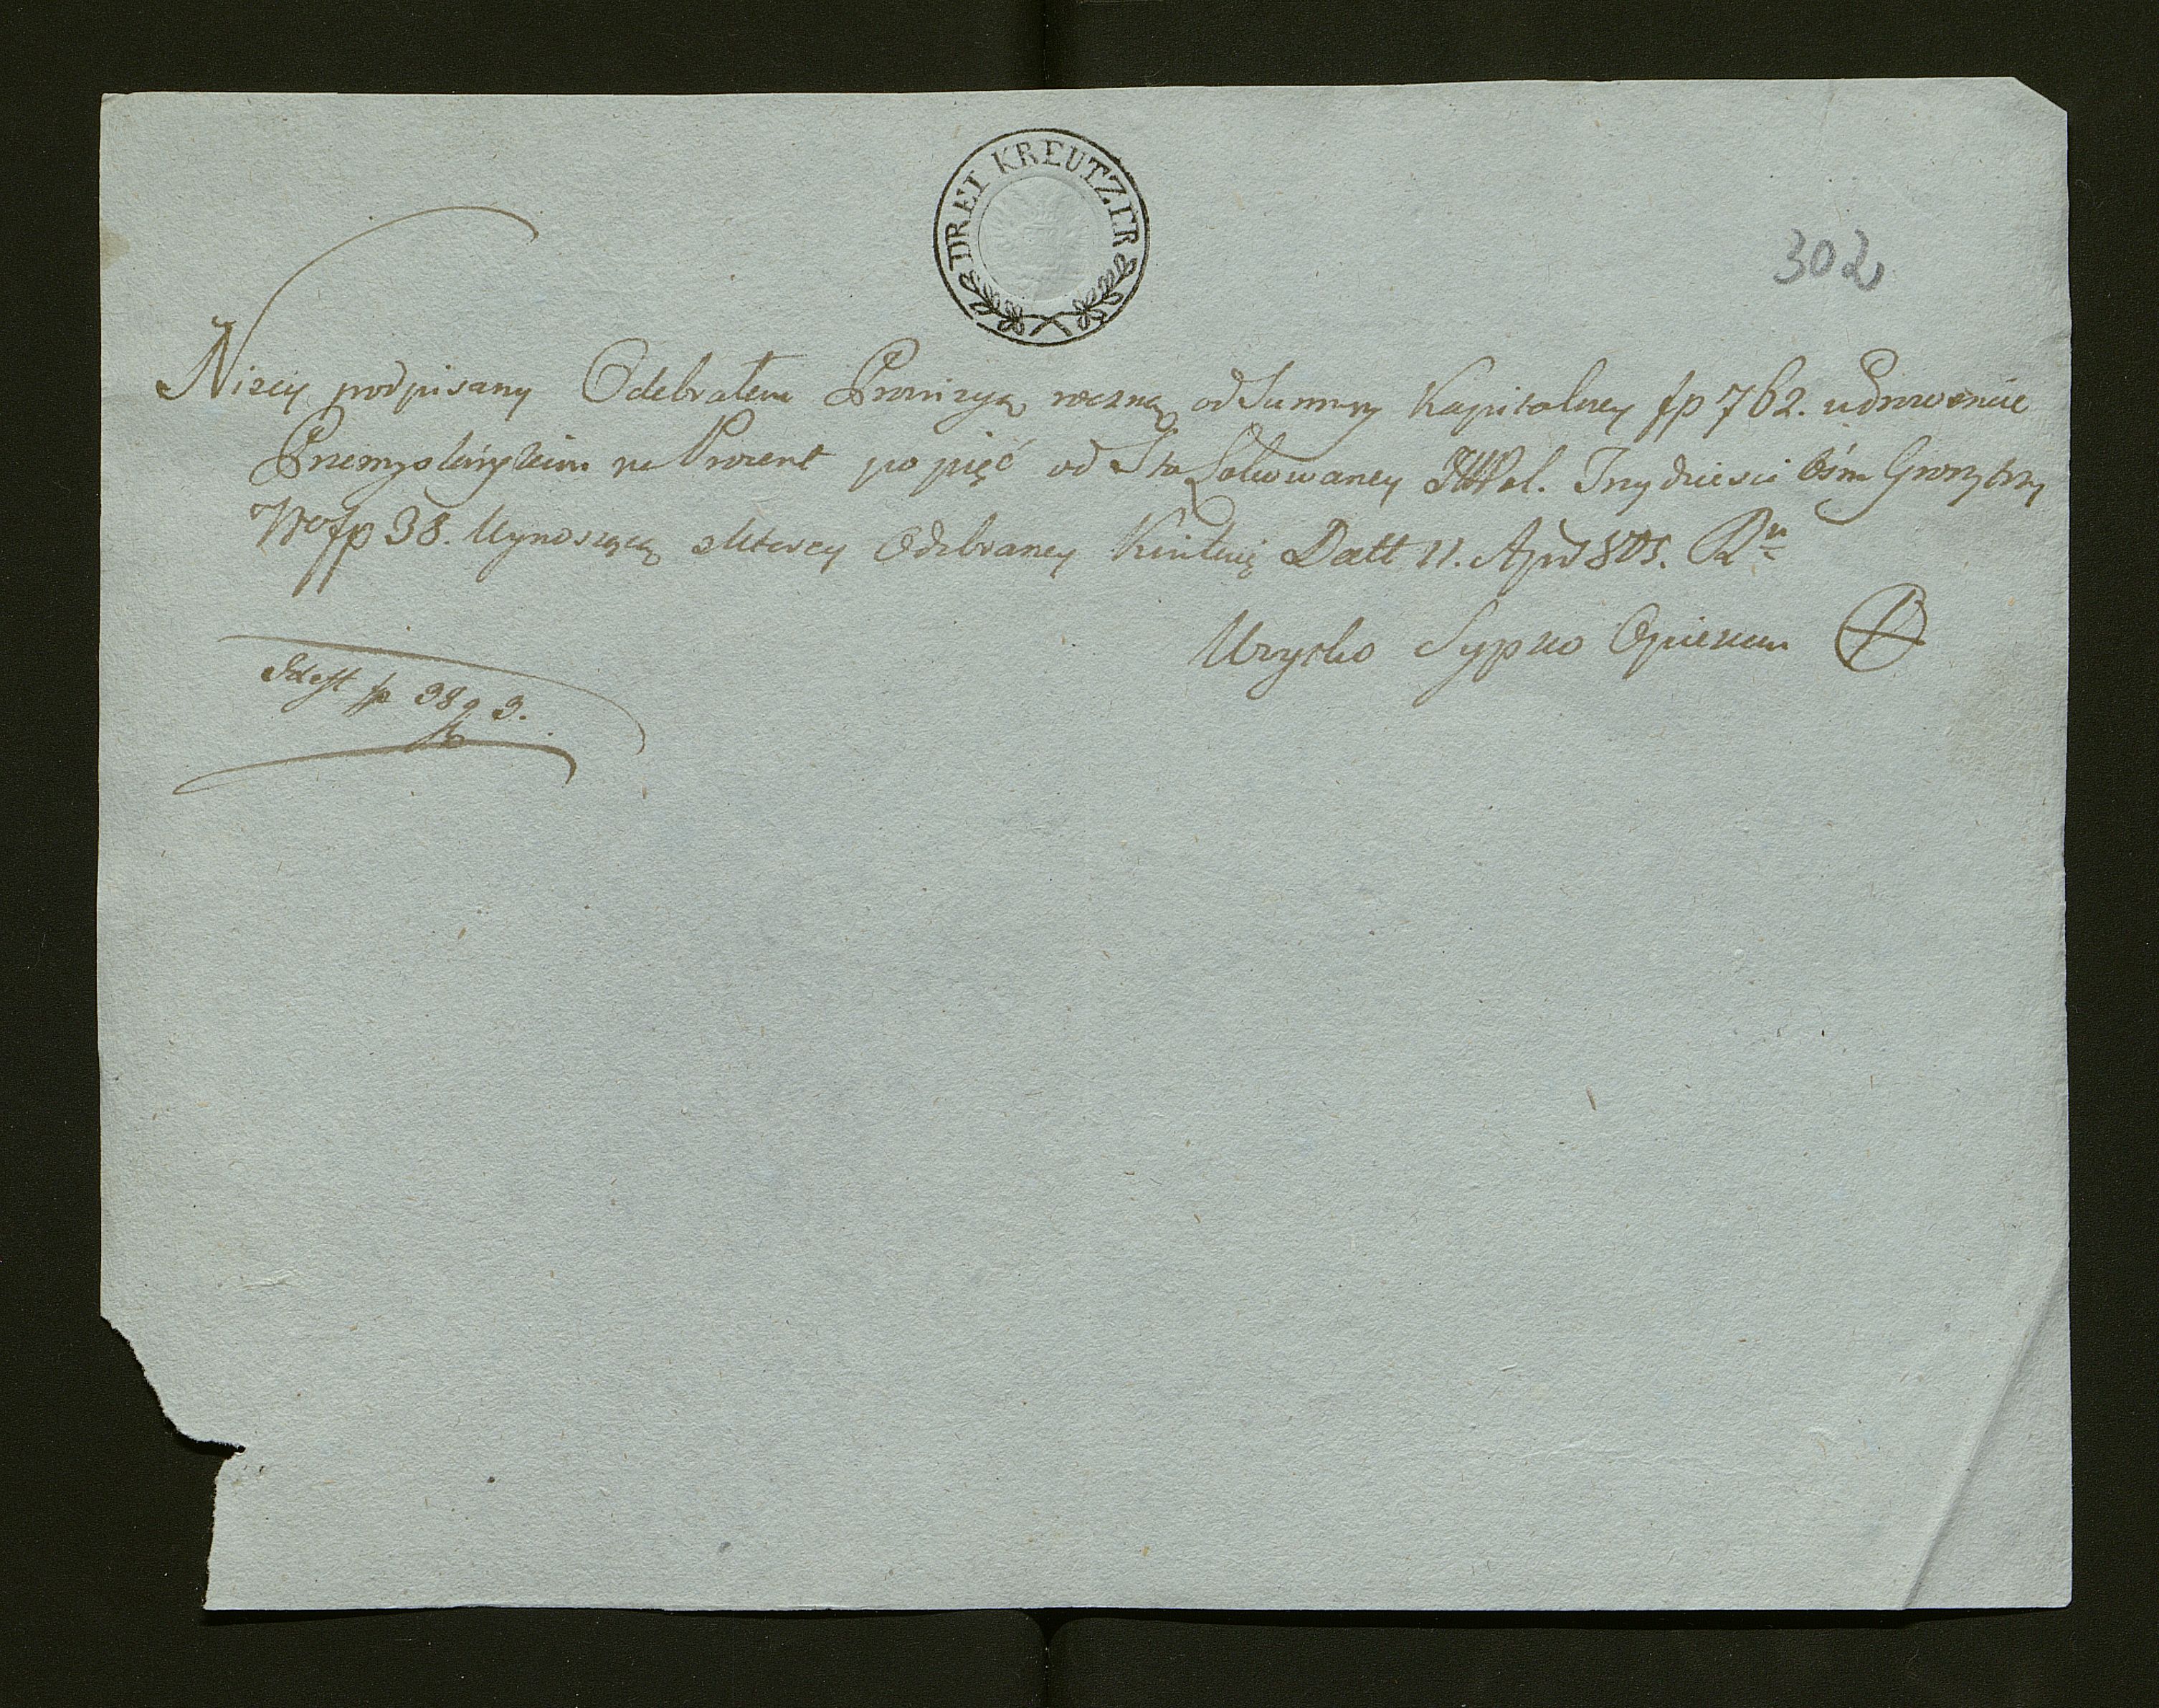 DREI KREUTZER
302
Niżey podpisany Odebrałem Prowizyą roczną od Summy Kapitalney fp 762. udworeńcie
Przemyslańskim na Procent po pięć od Sta Lokowaney Trzydzieści Ośm Groszy trzy
fp 38. Wynoszącą z Ktorey Odebraney Kwituię Datt 11. Apr 805. Ru
Urysko Sypko Opiekun
Idest fp 38 g 3.